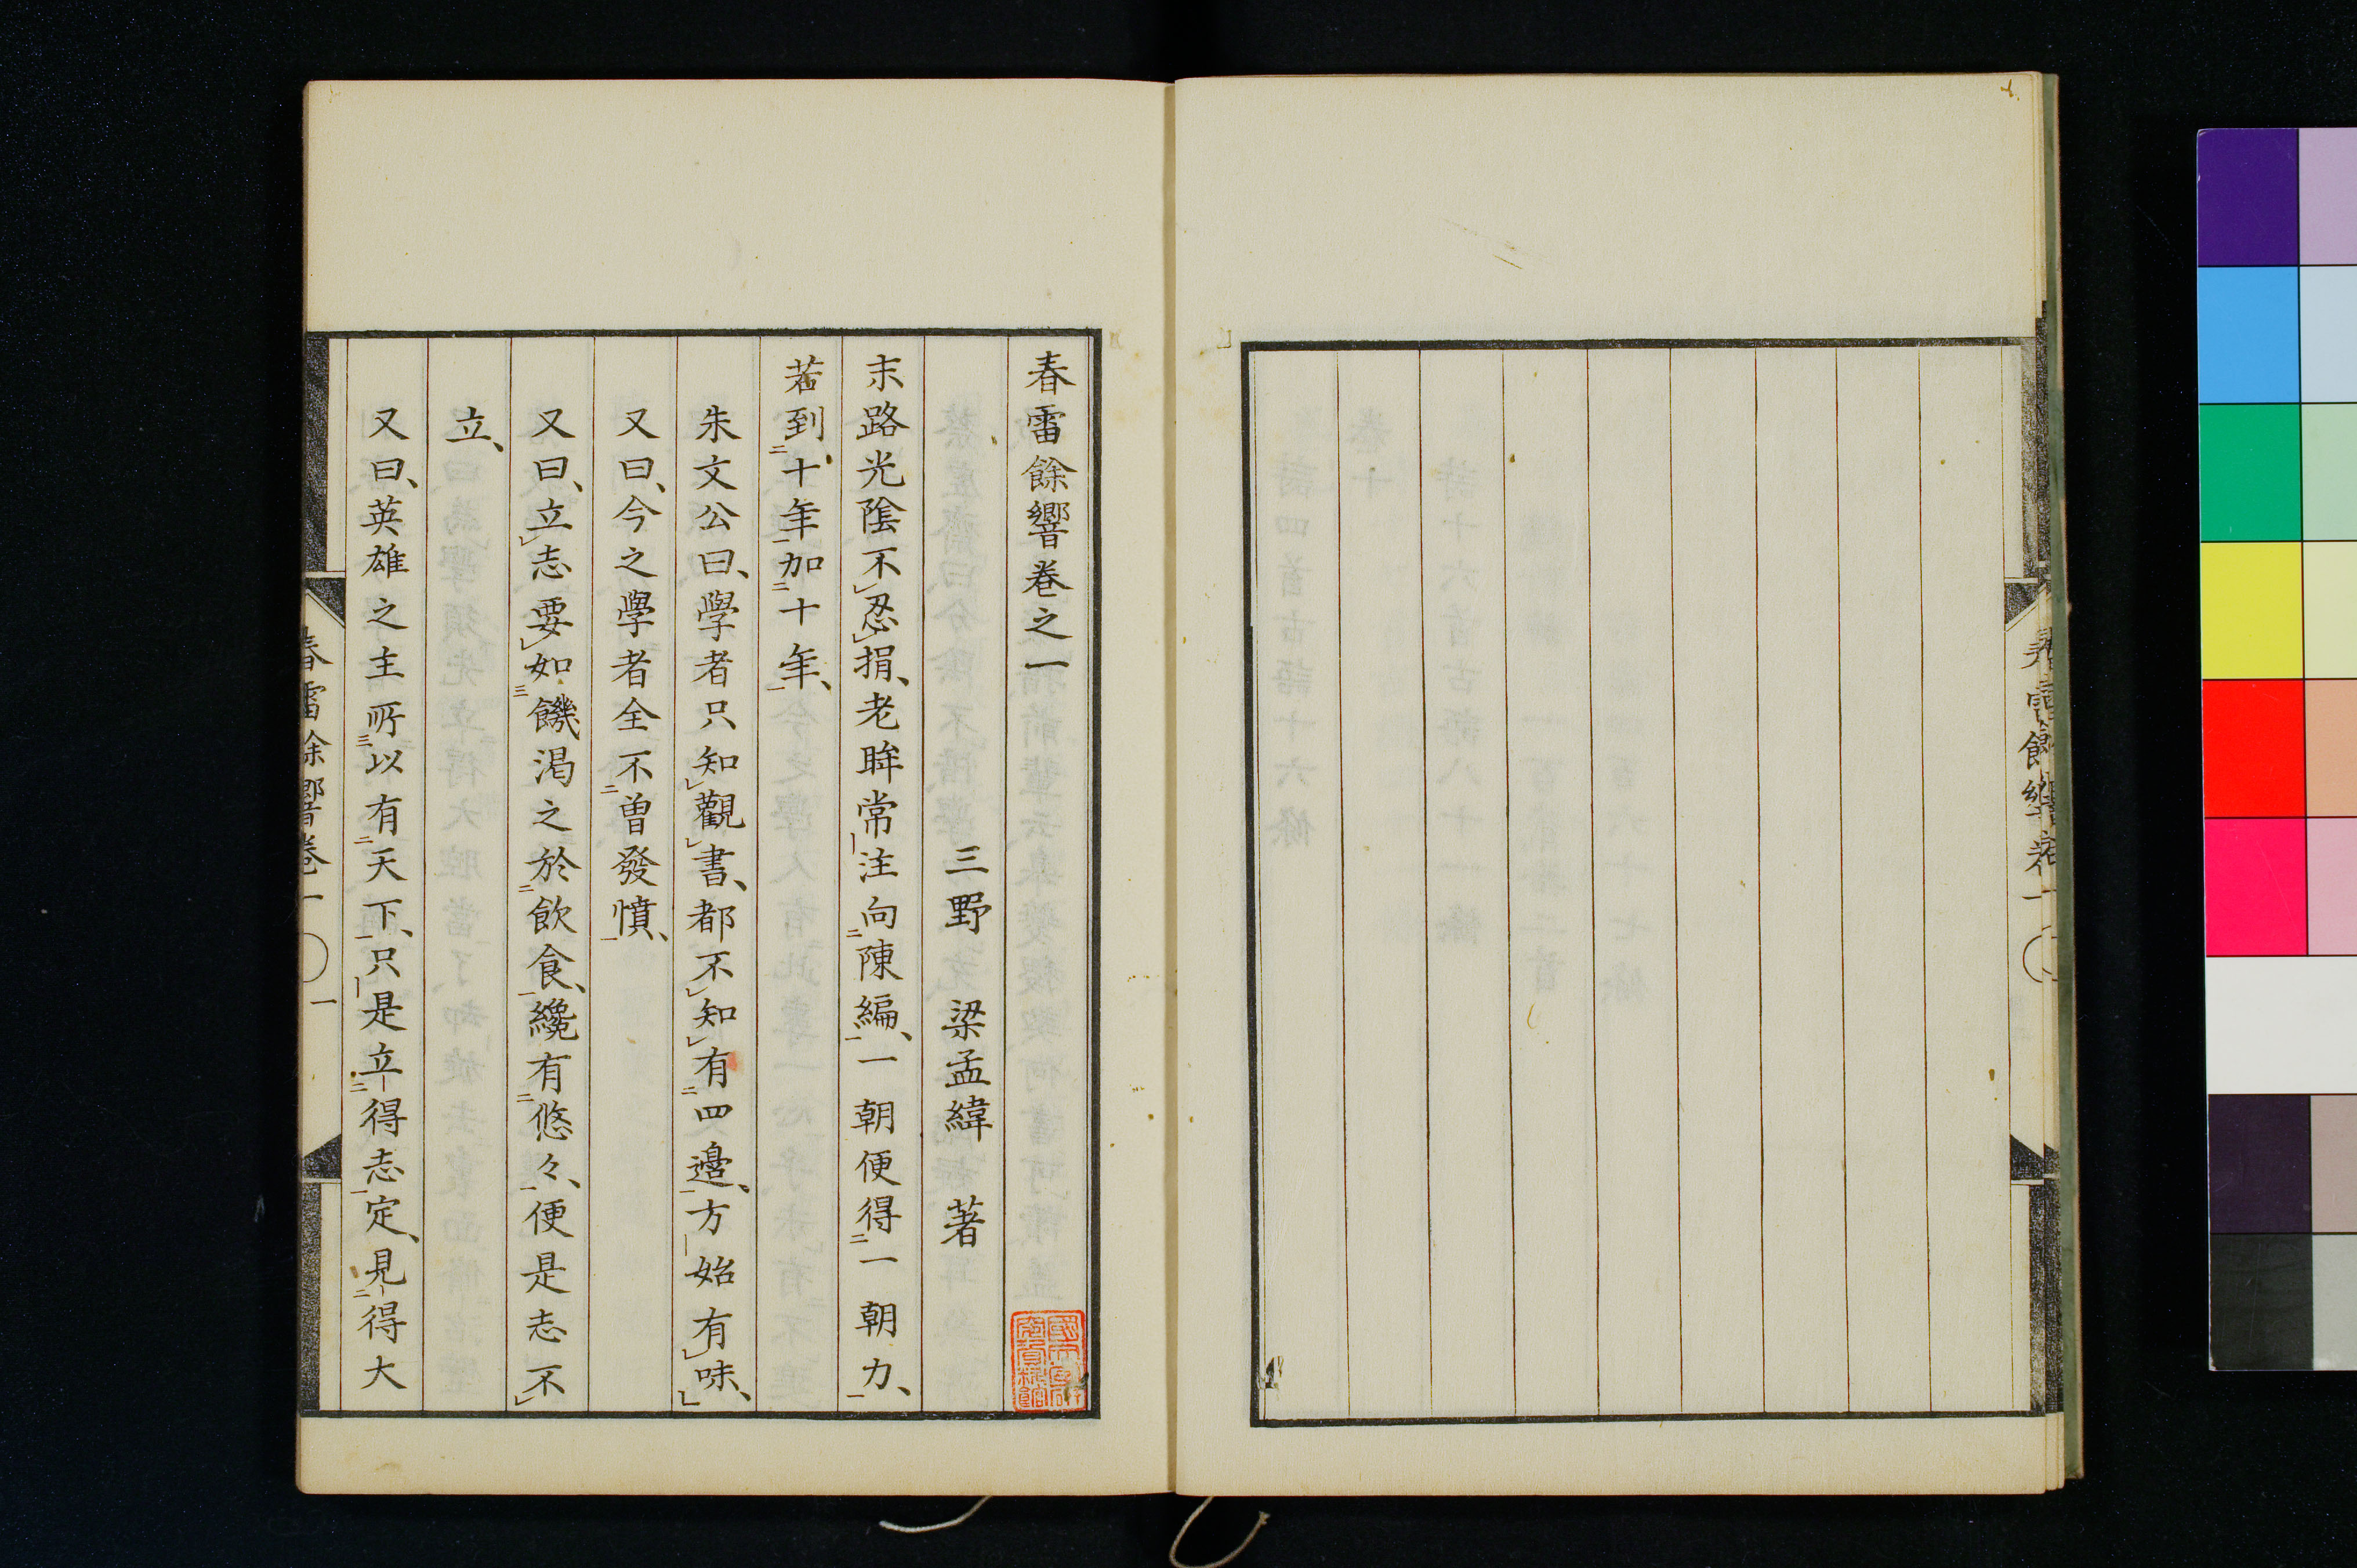 春雷餘響卷之一
三野 梁孟緯 著
末路光陰不忍捐、老眸常注向陳編、一朝便得一朝力、
若到十年加十年、
朱文公曰、學者只知觀書、都不知有四邊、方始有味、
又曰、今之學者全不曽發憤、
又曰、立志要如饑渴之於飲食、纔有悠々、便是志不
立、
又曰、英雄之主所以有天下、只是立得志定、見得大
春雷餘響卷一 一